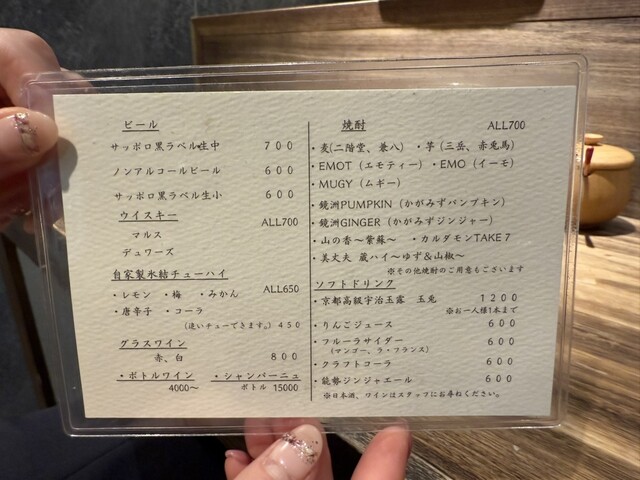 ビール
サッポロ黒ラベル生中 700
ノンアルコールビール 600
サッポロ黒ラベル生小 600
ウイスキー ALL700
マルス
デュワーズ
自家製氷結チューハイ ALL650
・レモン ・梅 ・みかん
・唐辛子 ・コーラ
(追いチューできます。) 450
グラスワイン
赤、白 800
・ボトルワイン
4000〜
・シャンパーニュ
ボトル 15000
焼酎 ALL700
・麦(二階堂、兼八) ・芋(三岳、赤兎馬)
・EMOT(エモティー) ・EMO(イーモ)
・MUGY(ムギー)
・鏡洲PUMPKIN(かがみずパンプキン)
・鏡洲GINGER(かがみずジンジャー)
・山の香〜紫蘇〜 ・カルダモンTAKE7
・美丈夫 蔵ハイ〜ゆず&山椒〜
※その他焼酎のご用意もございます
ソフトドリンク
・京都高級宇治玉露 玉兎 1200
※お一人様1本まで
・りんごジュース 600
・フルーラサイダー 600
(マンゴー、ラ・フランス)
・クラフトコーラ 600
・能勢ジンジャエール 600
※日本酒、ワインはスタッフにお尋ねください。